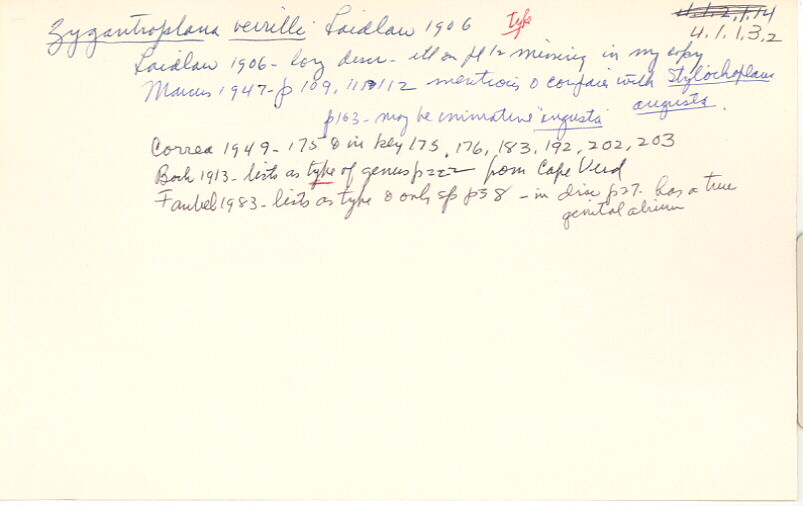 Zygantroplana verrilli Laidlaw 1906 type 4.1.2.1.14
4.1.1.3.2
Laidlaw 1906 - long descr - ill on pl 12 missing in my copy
Marcus 1947 - p 109, 111, 112 mentions & compares with Stylochoplana angusta.
p163 - may be immature angusta
Correa 1949 - 175 & in key 175, 176, 183, 192, 202, 203
Bock 1913 - lists as type of genus p 222 from Cape Verd
Faubel 1983 - lists as type & only sp p58 - in disc p27. has a true
genital atrium